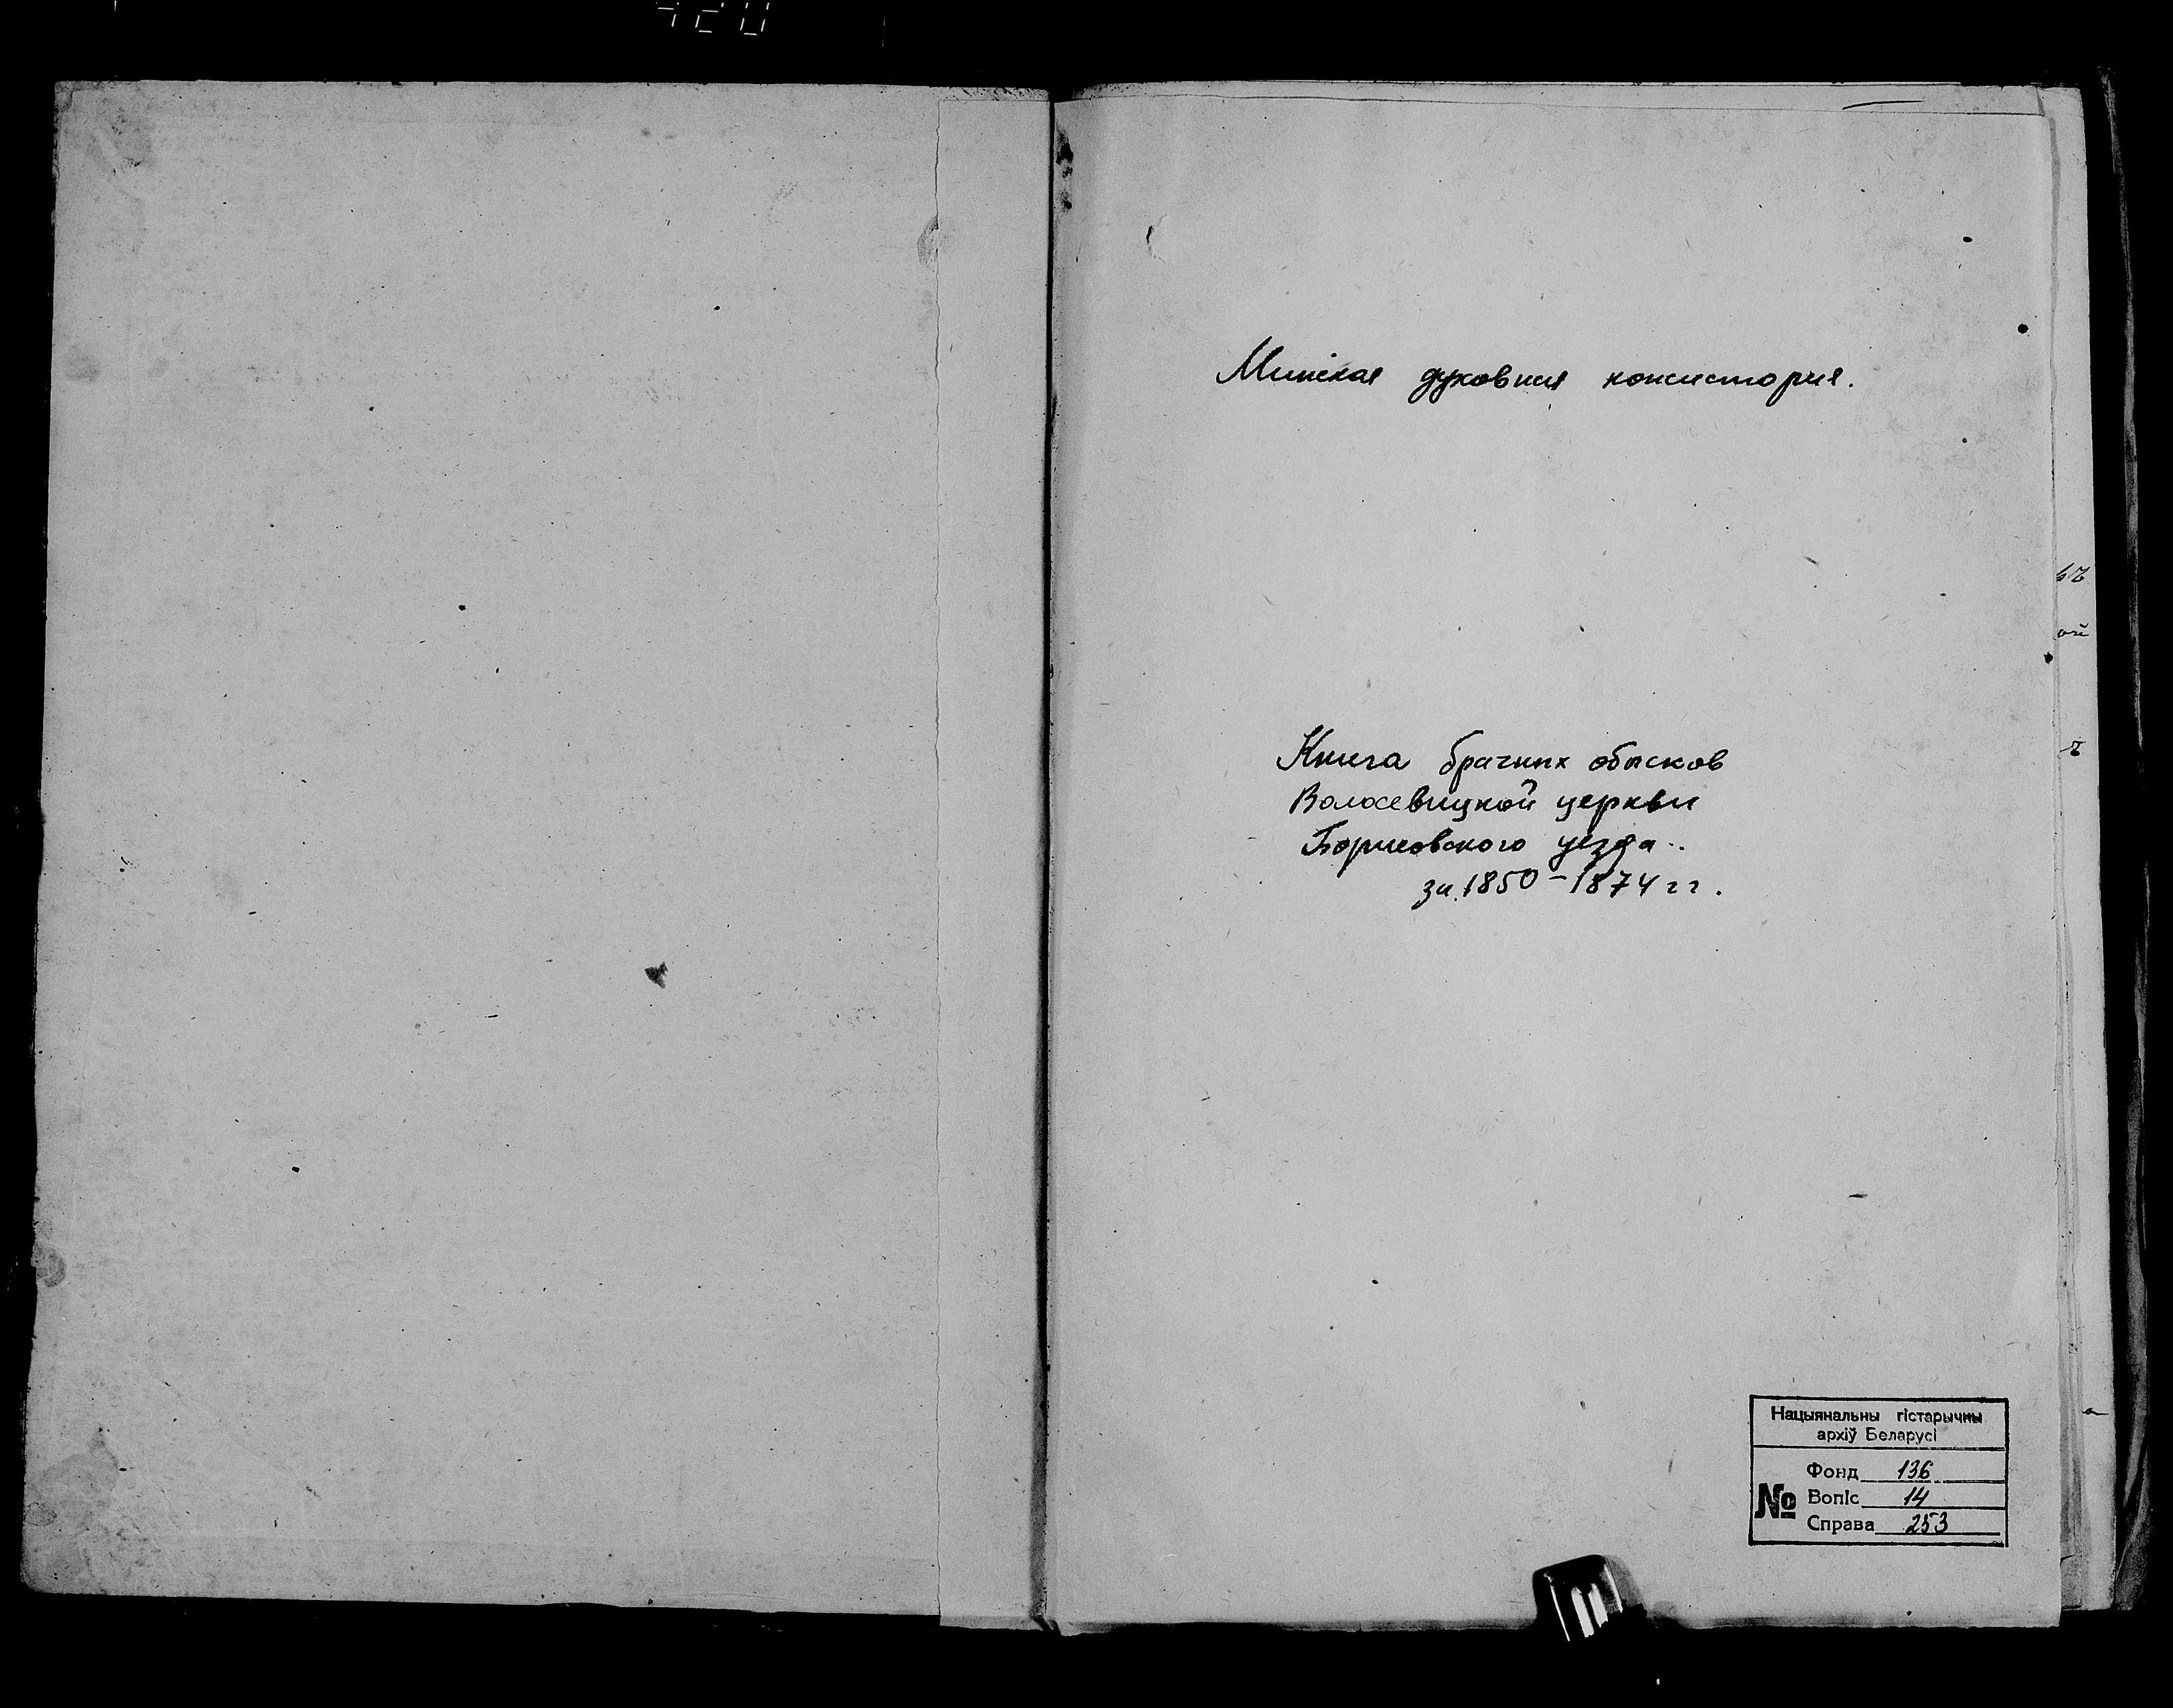 Минская духовная консистория.
Книга брачных обысков
Волосевицкой церкви
Борисовского уезда..
за 1850-1874 гг.
Нацыянальны гістарычны
архіў Беларусі
Фонд 136
№ Вопіс 14
Справа 253